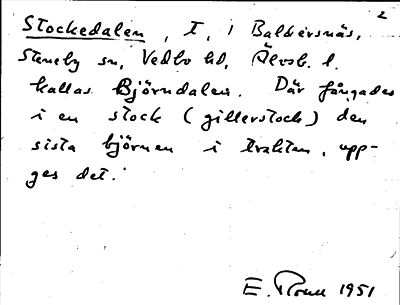 2
Stockedalen, t, i Balkersnäs,
Steneby sn, Vedbo hd, Älvsb. l.
kallas Björndalen. Där fångades
i en stock (gillerstock) den
sista björnen i trakten, upp-
ges det.
E. 1951